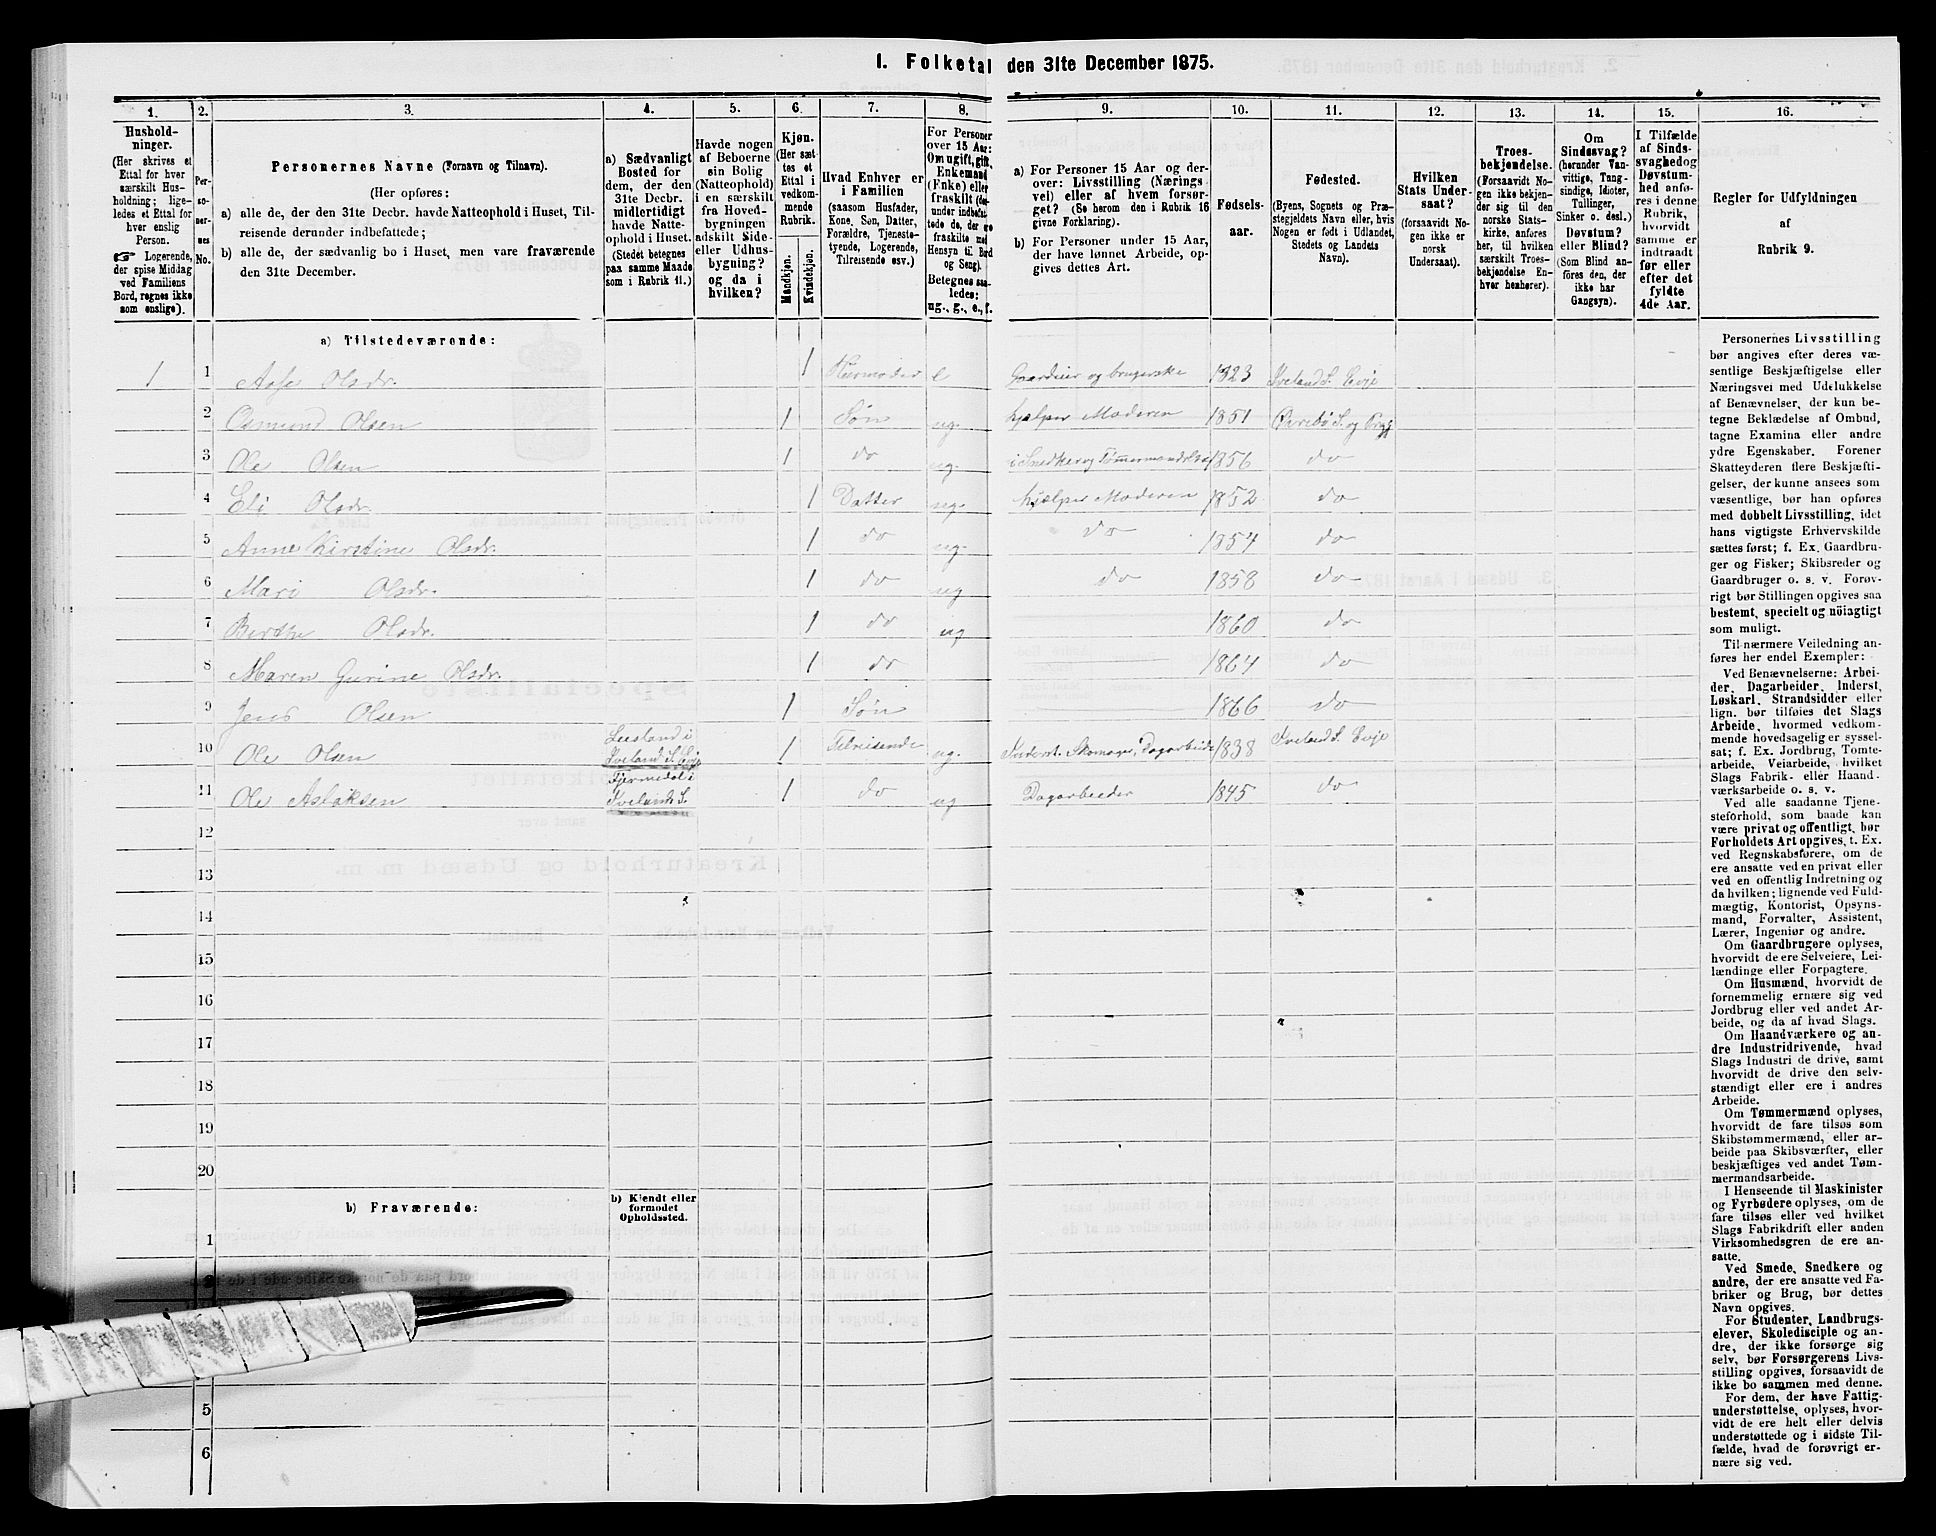 I. Folketal den 31te December 1875.
1. 2. 3. 4. 5. 6. 7. 8. 9. 10. 11. 12. 13. 14. 15. 16.
Hushold-
ninger.
(Her skrives et
Ettal for hver
særskilt Hus-
holdning; lige-
ledes et Ettal for
hver enslig
Person.
☞ Logerende,
der spise Middag
ved Familiens
Bord, regnes ikke
som enslige).
Per-
so-
ner-
nes
No.
Personernes Navne (Fornavn og Tilnavn).
(Her opføres:
a) alle de, der den 31te Decbr. havde Natteophold i Huset, Til-
reisende derunder indbefattede;
b) alle de, der sædvanlig bo i Huset, men vare fraværende
den 31te December.
a) Sædvanligt
Bosted for
dem, der den
31te Decbr.
midlertidigt
havde Natte-
ophold i Huset.
(Stedet betegnes
paa samme Maade
som i Rubrik 11.)
Havde nogen
af Beboerne
sin Bolig
(Natteophold)
i en særskilt
fra Hoved-
bygningen
adskilt Side-
eller Udhus-
bygning?
og da i
hvilken?
Kjøn.
(Her sæt-
tes et
Ettal i
vedkom-
mende
Rubrik.
Mandkjøn.
Kvindekjøn.
Hvad Enhver er
i Familien
(saasom Husfader,
Kone, Søn, Datter,
Forældre, Tjeneste-
tyende, Logerende,
Tilreisende osv.)
For Personer
over 15 Aar:
Om ugift, gift,
Enkemand
(Enke) eller
fraskilt
Betegnes saa-
ledes:
ug., g., e., f.
a) For Personer 15 Aar og der-
over: Livsstilling (Nærings-
vei) eller af hvem forsør-
get? (Se herom den i Rubrik 16
givne Forklaring).
b) For Personer under 15 Aar,
der have lønnet Arbeide, op-
gives dettes Art.
Fødsels-
aar.
Fødested.
(Byens, Sognets og Præ-
stegjeldets Navn eller, hvis
Nogen er født i Udlandet,
Stedets og Landets
Navn).
Hvilken
Stats Under-
saat?
(forsaavidt No-
gen ikke er
norsk
Undersaat).
Troes-
bekjendelse.
(Forsaavidt No-
gen ikke bekjen-
der sig til den
norske Stats-
kirke, anføres
her, til hvilken
særskilt Troes-
bekjendelse En-
hver henhører).
Om
Sindssvag?
(herunder Van-
vittige, Tung-
sindige, Idioter,
Tullinger,
Sinker o. desl.)
Døvstum?
eller Blind?
(Som Blind an-
føres den, der
ikke har
Gangsyn).
I Tilfælde
af Sinds-
svaghed og
Døvstum-
hed anfø-
res i denne
Rubrik,
hvorvidt
samme er
indtraadt
før eller
efter det
fyldte
4de Aar.
Regler for Udfyldningen
af
Rubrik 9.
a) Tilstedeværende:
1 1 Aase Olsdr. 1 Husmoder e Gaardeier og brugerske 1823 Iveland S. Evje
2 Osmund Olsen 1 Søn ug. hjelper Moderen 1851 Øvrebø S. og Prgj
3 Ole Olsen 1 do ug. i Snedker og Tømmermandslære 1856 do
4 Eli Olsdr. 1 Datter ug. hjælper Moderen 1852 do
5 Anne Kirstine Olsdr. 1 do ug. do 1854 do
6 Mari Olsdr. 1 do ug do 1858 do
7 Berthe Olsdr. 1 do ug 1860 do
8 Maren Gurine Olsdr. 1 do 1864 do
9 Jens Olsen 1 Søn 1866 do
10 Ole Olsen Leesland i Iveland S. Evje 1 Tilreisende ug. Inderst. Skomager, Dagarbeide 1838 Iveland S. Evje
11 Ole Aslaksen i Ivelands S. 1 do ug Dagarbeider 1845 do
12
13
14
15
16
17
18
19
20
b) Fraværende:
b) Kjendt eller
formodet
Opholdssted.
1
2
5
6
Personernes Livsstilling
bør angives efter deres væ-
sentlige Beskjæftigelse eller
Næringsvei med Udelukkelse
af Benævnelser, der kun be-
tegne Beklædelse af Ombud,
tagne Examina eller andre
ydre Egenskaber. Forener
Skatteyderen flere Beskjæfti-
gelser, der kunne ansees som
væsentlige, bør han opføres
med dobbelt Livsstilling, idet
hans vigtigste Erhvervskilde
sættes først; f. Ex. Gaardbru-
ger og Fisker; Skibsreder og
Gaardbruger o. s. v. Forøv-
rigt bør Stillingen opgives saa
bestemt, specielt og nøiagtigt
som muligt.
Til nærmere Veiledning an-
føres her endel Exempler:
Ved Benævnelserne: Arbei-
der, Dagarbeider, Inderst,
Løskarl, Strandsidder eller
lign. bør tilføies det Slags
Arbeide, hvormed vedkom-
mende hovedsagelig er syssel-
sat; f. Ex. Jordbrug, Tomte-
arbeide, Veiarbeide, hvilket
Slags Fabrik- eller Haand-
værksarbeide o. s. v.
Ved alle saadanne Tjene-
steforhold, som baade kan
være privat og offentligt, bør
Forholdets Art opgives, t. Ex.
ved Regnskabsførere, om de
ere ansatte ved en privat eller
ved en offentlig Indretning og
da hvilken; lignende ved Fuld-
mægtig, Kontorist, Opsyns-
mand, Forvalter, Assistent,
Lærer, Ingeniør og andre.
Om Gaardbrugere oplyses,
hvorvidt de ere Selveiere, Lei-
lændinge eller Forpagtere.
Om Husmænd, hvorvidt de
fornemmelig ernære sig ved
Jordbrug eller ved andet Ar-
beide, og da af hvad Slags.
Om Haandværkere og an-
dre Industridrivende, hvad
Slags Industri de drive, samt
hvorvidt de drive den selv-
stændigt eller ere i andres
Arbeide.
Om Tømmermænd oplyses,
hvorvidt de fare tilsøs som
Skibstømmermænd, eller ar-
beide paa Skibsværfter, eller
beskjæftiges ved andet Tøm-
mermandsarbeide.
I Henseende til Maskinister
og Fyrbødere oplyses, om de
fare tilsøs eller ved hvilket
Slags Fabrikdrift eller anden
Virksomhedsgren de ere an-
satte.
Ved Smede, Snedkere og
andre, der ere ansatte ved Fa-
briker og Brug, bør dettes
Navn opgives.
For Studenter, Landbrugs-
elever, Skoledisciple og an-
dre, der ikke forsørge sig
selv, bør Forsørgerens Livs-
stilling opgives, forsaavidt de
ikke bo sammen med denne.
For dem, der have Fattig-
understøttelse, oplyses, hvor-
vidt de ere helt eller delvis
understøttede og i sidste Til-
fælde, hvad de forøvrigt er-
nære sig ved.